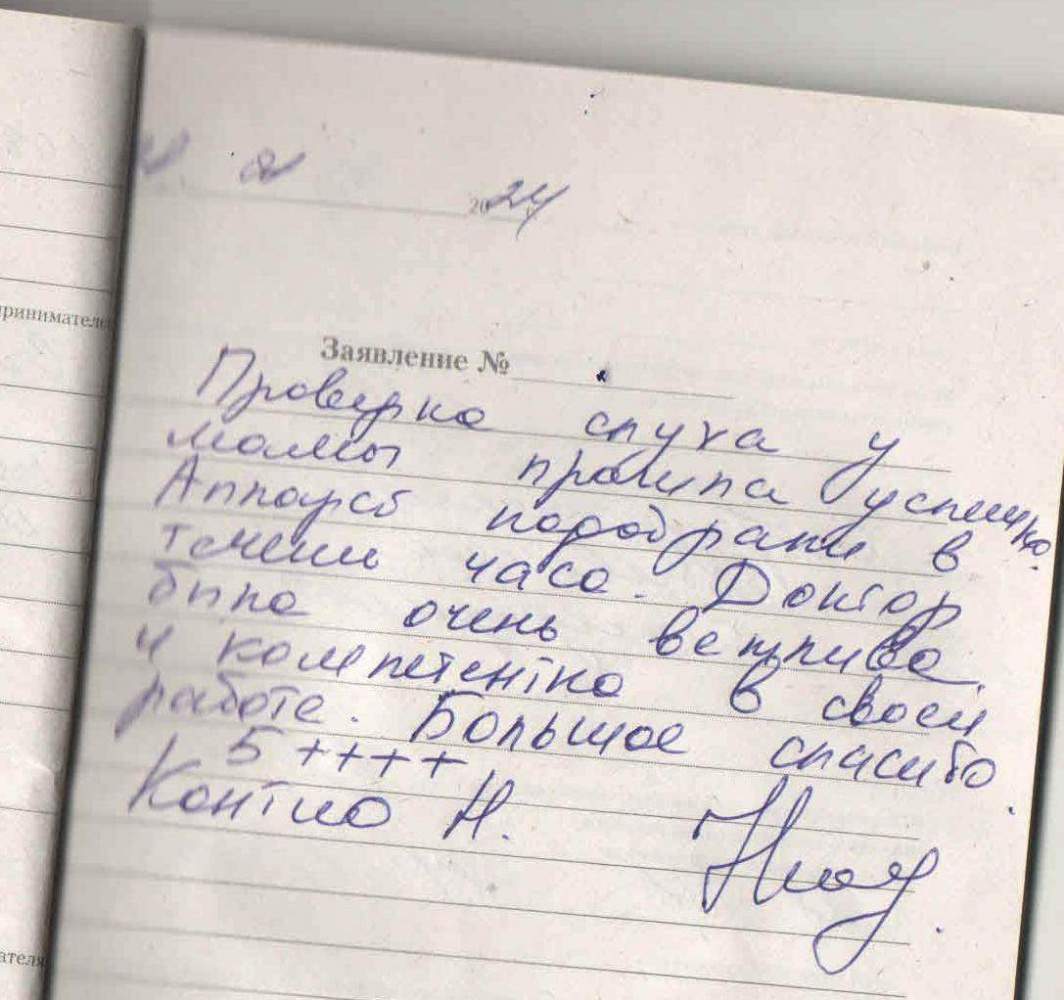 2024
принимателе
Заявление №
Проверка слуха у
мамы прошла успешно.
Аппарат подобрали в
течении часа. Доктор
была очень вежлива
и компетентна в своей
работе. Большое спасибо.
5++++
Н.
ателя